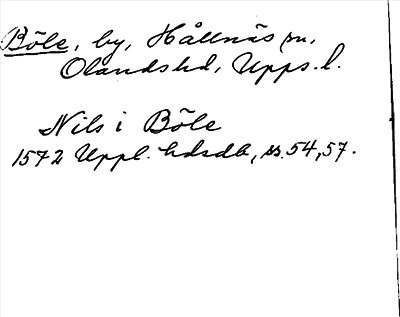 Böle, by, Hållnäs sn,
Olands hd, Upps. l.
Nils i Böle
1572 Uppl. hdsdb, ss. 54, 57.